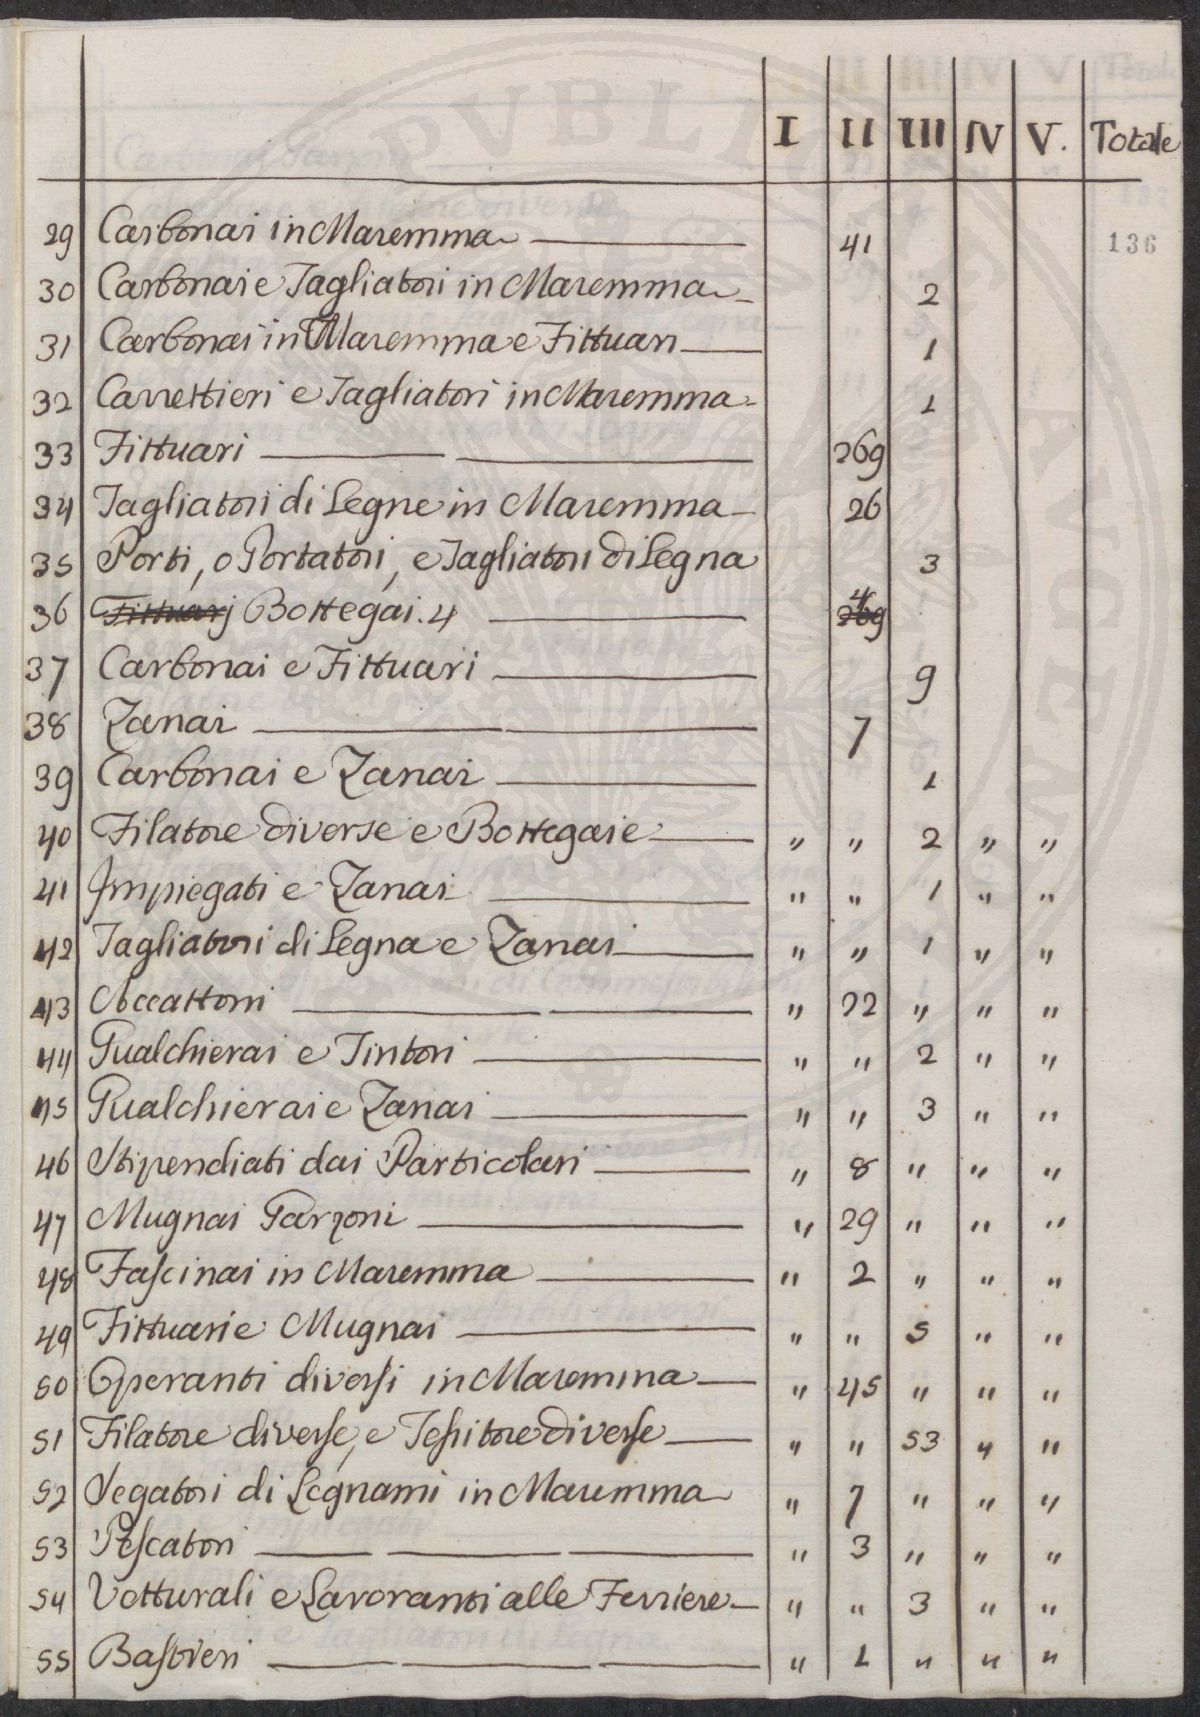 I II III IV V. Totale
136
29 Carbonai in Maremma 41
30 Carbonai e Tagliatori in Maremma 2
31 Carbonai in Maremma e Fittuari 1
32 Carrettieri e Tagliatori in Maremma 1
33 Fittuari 269
34 Tagliatori di Legne in Maremma 26
35 Porti, o Portatori, e Tagliatori di Legna 3
36 Fittuarj Bottegai. 4 269 4
37 Carbonai e Fittuari 9
38 Zanai 7
39 Carbonai e Zanai 1
40 Filatore diverse e Bottegaie " " 2 " "
41 Impiegati e Zanai " " 1 " "
42 Tagliatori di Legna e Zanai " " 1 " "
43 Accattoni " 22 " " "
44 Gualchierai e Tintori " " 2 " "
45 Gualchierai e Zanai " " 3 " "
46 Stipendiati dai Particolari " 8 " " "
47 Mugnai Garzoni " 29 " " "
48 Fascinai in Maremma " 2 " " "
49 Fittuari e Mugnai " " 5 " "
50 Operanti diversi in Maremma " 45 " " "
51 Filatore diverse, e Tessitore diverse " " 53 " "
52 Segatori di Legnami in Maremma " 7 " " "
53 Pescatori " 3 " " "
54 Vetturali e Lavoranti alle Ferriere " " 3 " "
55 Bastieri " 1 " " "